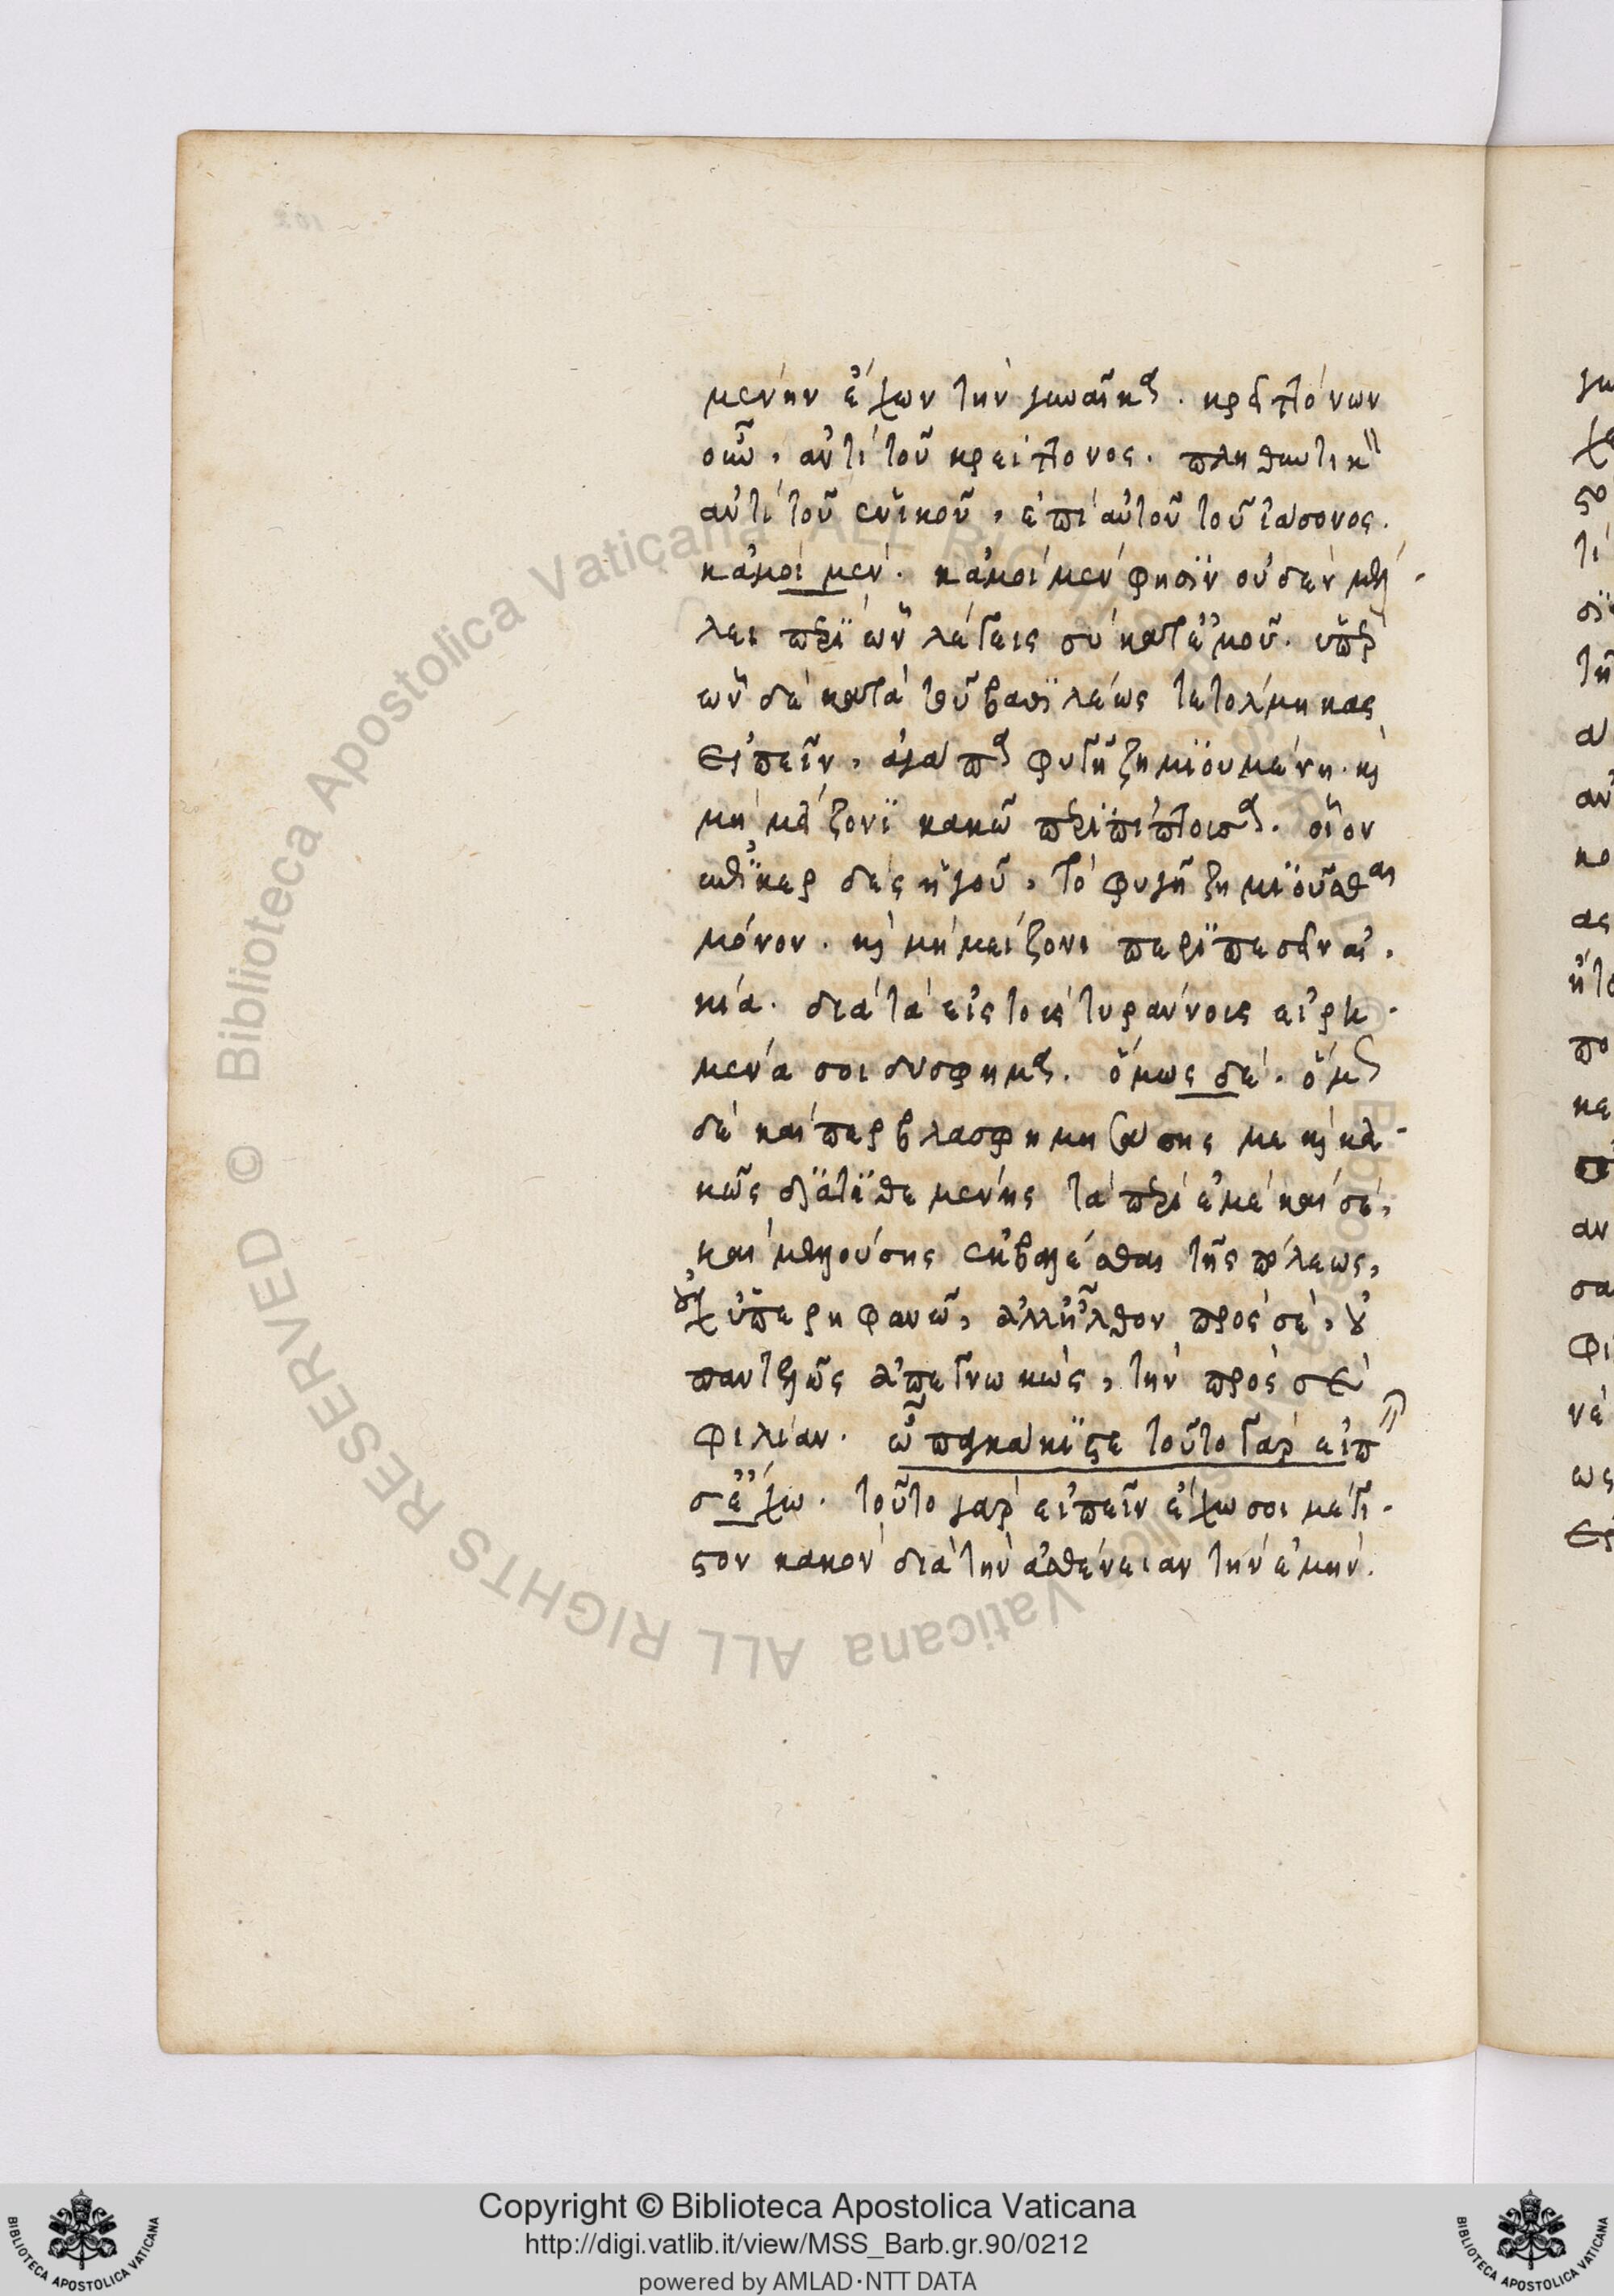 μενην ἔχων τὴν γυναῖκα. κρειττόνων
οὖν, ἀντὶ τοῦ κρείττονος. πληθυντικ
ἀντὶ τοῦ ἑνικοῦ, ἐπὶ αὐτοῦ τοῦ ἰάσονος.
κἀμοὶ μεν. κἀμοὶ μεν φησὶν οὐδεν μέλ-
λει περὶ ὧν λέγεις σὺ κατ ἐμοῦ. ὑπὲρ
ὧν δὲ κατὰ τοῦ βασιλέως τετόλμηκας
εἰπεῖν, ἀγάπα φυγῇ ζημιουμένη. καὶ
μὴ μείζονι κακῶ περιπίπτουσα. οἷον
δὲς ἡγοῦ, τὸ φυγῆ ζημιοῦσθαι
μόνον. καὶ μὴ μείζονι περιπεσεῖν αἰ-
κία. διὰ τὰ εἰς τοὺς τυράννους εἰρη-
μένα σοι δύσφημα. ὅμως δέ. ὅμως
δὲ καίπερ βλασφημησάσης με καὶ κα-
κῶς διατιθεμένης τὰ περὶ ἐμὲ καὶ σέ,
καὶ μελλούσης ἐκβαλέσθαι τῆς πόλεως,
οὐχ ὑπερηφανῶ, ἀλλ ἦλθον πρὸς σέ, οὐ
παντελῶς ἀπεγνωκὼς, τὴν πρὸς σὲ
φιλίαν. ὦ παγκάκιστε τοῦτο γάρ εἰπ
σ ἔχω. τοῦτο γὰρ εἰπεῖν ἔχω σοι μέγι-
στον κακὸν διὰ τὴν ἀσθένειαν τὴν ἐμήν.
Copyright © Biblioteca Apostolica Vaticana
http://digi.vatlib.it/view/MSS_Barb.gr.90/0212
powered by AMLAD·NTT DATA